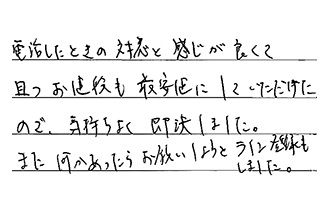 電話したときの対応と感じが良くて
且つお値段も最安値にしていただけた
ので、気持ちよく即決しました。
また何かあったらお願いしようとライン登録も
しました。